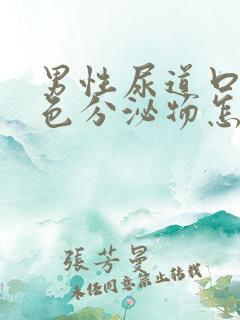 男性尿道口
色分泌物怎
張芳曼
未经同意禁止转载